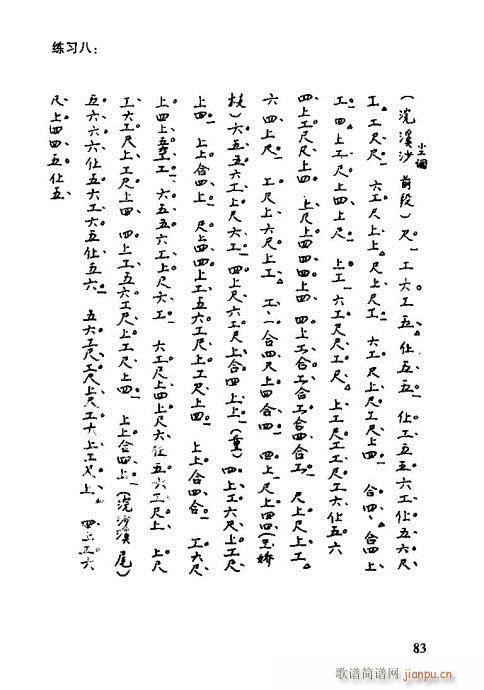 练习八：
（浣溪沙 前段）尺 工六工五 仕五五 仕工五五六工仕五六尺
小工调
工 工尺尺 六工尺上上 尺上尺工 六工尺上尺上四 合四 合四上
工 四上工尺上四上尺 上工 六工尺尺工尺 上工尺工工尺工六仕五六
四上工尺尺上四 上尺上四四四上四 四上工合工合工合四合工 尺上尺上工
六四上尺 工尺上六尺上工 工 一合四尺上四合四 四上尺上四四（王娇
枝）六五五六工上尺六工 四上尺六工尺上合四上上（重）四上工六尺上工尺
上四 上上合四上 尺上四四上工五六工尺上工尺上四 上上合四合 工六尺
上四上五工 六五五六工上尺六工 六工尺上四上尺六仕五六工尺上 上尺
工六工尺上工尺上四 四上工五六工尺上工尺上四 上上合四上（浣沙溪尾）
五六六六仕五六工六五仕五六 五六工尺工尺上尺工六上工尺上 四上工六
尺上四四五仕五
83
歌谱简谱网
jianpu.cn